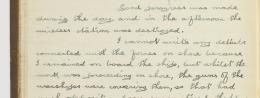 Good progress was made
during the day and in the afternoon the
wireless station was destroyed.
I cannot write any details
connected with the forces on shore because
I remained on board the ship, but whilst the
work was proceeding on shore, the guns of the
warships were covering them, so that had